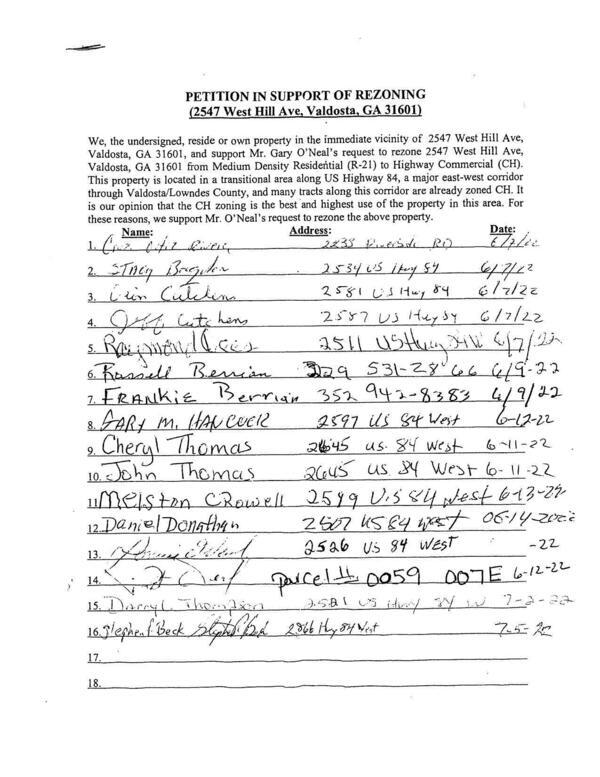 PETITION IN SUPPORT OF REZONING
(2547 West Hill Ave, Valdosta, GA 31601)
We, the undersigned, reside or own property in the immediate vicinity of 2547 West Hill Ave,
Valdosta, GA 31601, and support Mr. Gary O'Neal's request to rezone 2547 West Hill Ave,
Valdosta, GA 31601 from Medium Density Residential (R-21) to Highway Commercial (CH).
This property is located in a transitional area along US Highway 84, a major east-west corridor
through Valdosta/Lowndes County, and many tracts along this corridor are already zoned CH. It
is our opinion that the CH zoning is the best and highest use of the property in this area. For
these reasons, we support Mr. O'Neal's request to rezone the above property.
Name: Address: Date:
1. Riverside RD 6/7/22
2. Stacy 2534 US Hwy 84 6/7/22
3. Erin Cutchens 2581 US Hwy 84 6/7/22
4. Jeff Cutchens 2587 US Hwy 84 6/7/22
5. Raymond 2511 US Hwy 84W 6/7/22
6. Russell Berrian 229 531-2866 6/9-22
7. FRANKIE Berrian 352 942-8383 6/9/22
8. GARY M. HANCOCK 2597 US 84 West 6-12-22
9. Cheryl Thomas 2645 US. 84 West 6-11-22
10. John Thomas 2645 US 84 West 6-11-22
11. Melston CRowell 2599 U.S 84 West 6-13-22
12. Daniel Donathan 2507 US 84 West 06-14-2022
13. 2526 US 84 WEST -22
14. parcel # 0059 007E 6-12-22
15. Darryl Thompson 2581 US Hwy 84 W 7-2-22
16. Stephen F. Beck 2866 Hwy 84 West 7-5-22
17.
18.